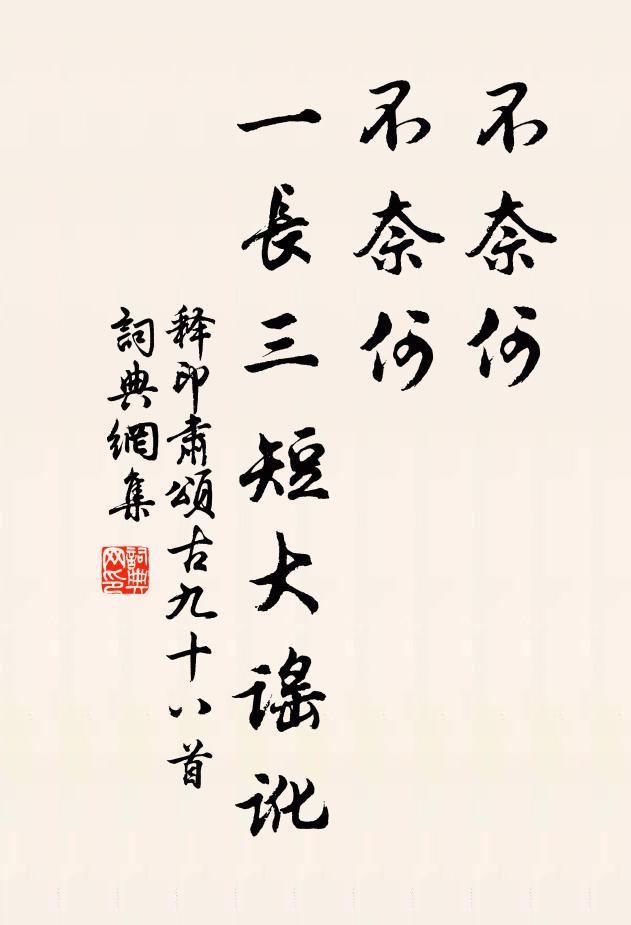 不奈何
不奈何
一長三短大謡訛
释印肅頌古九十八首
詞典網集
詞典网印